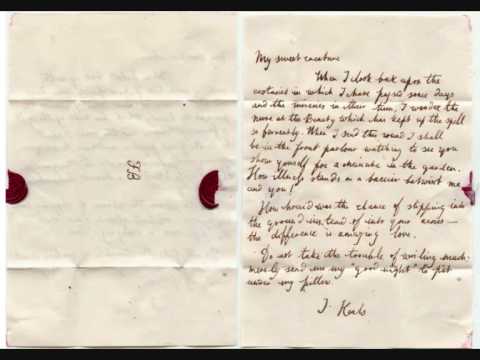 FB
My sweet creature
When I look back upon the
ecstacies in which I have passed some days
and the miseries in their turn, I wonder the
more at the Beauty which has kept up the spell
so fervently. When I send this round I shall
be in the front parlour watching to see you
show yourself for a minute in the garden.
How illness stands as a barrier betwixt me
and you!
How horrid was the chance of slipping into
the ground instead of into your arms—
the difference is amazing love.
Do not take the trouble of writing much:
merely send me my "good night" to put
under my pillow
J. Keats